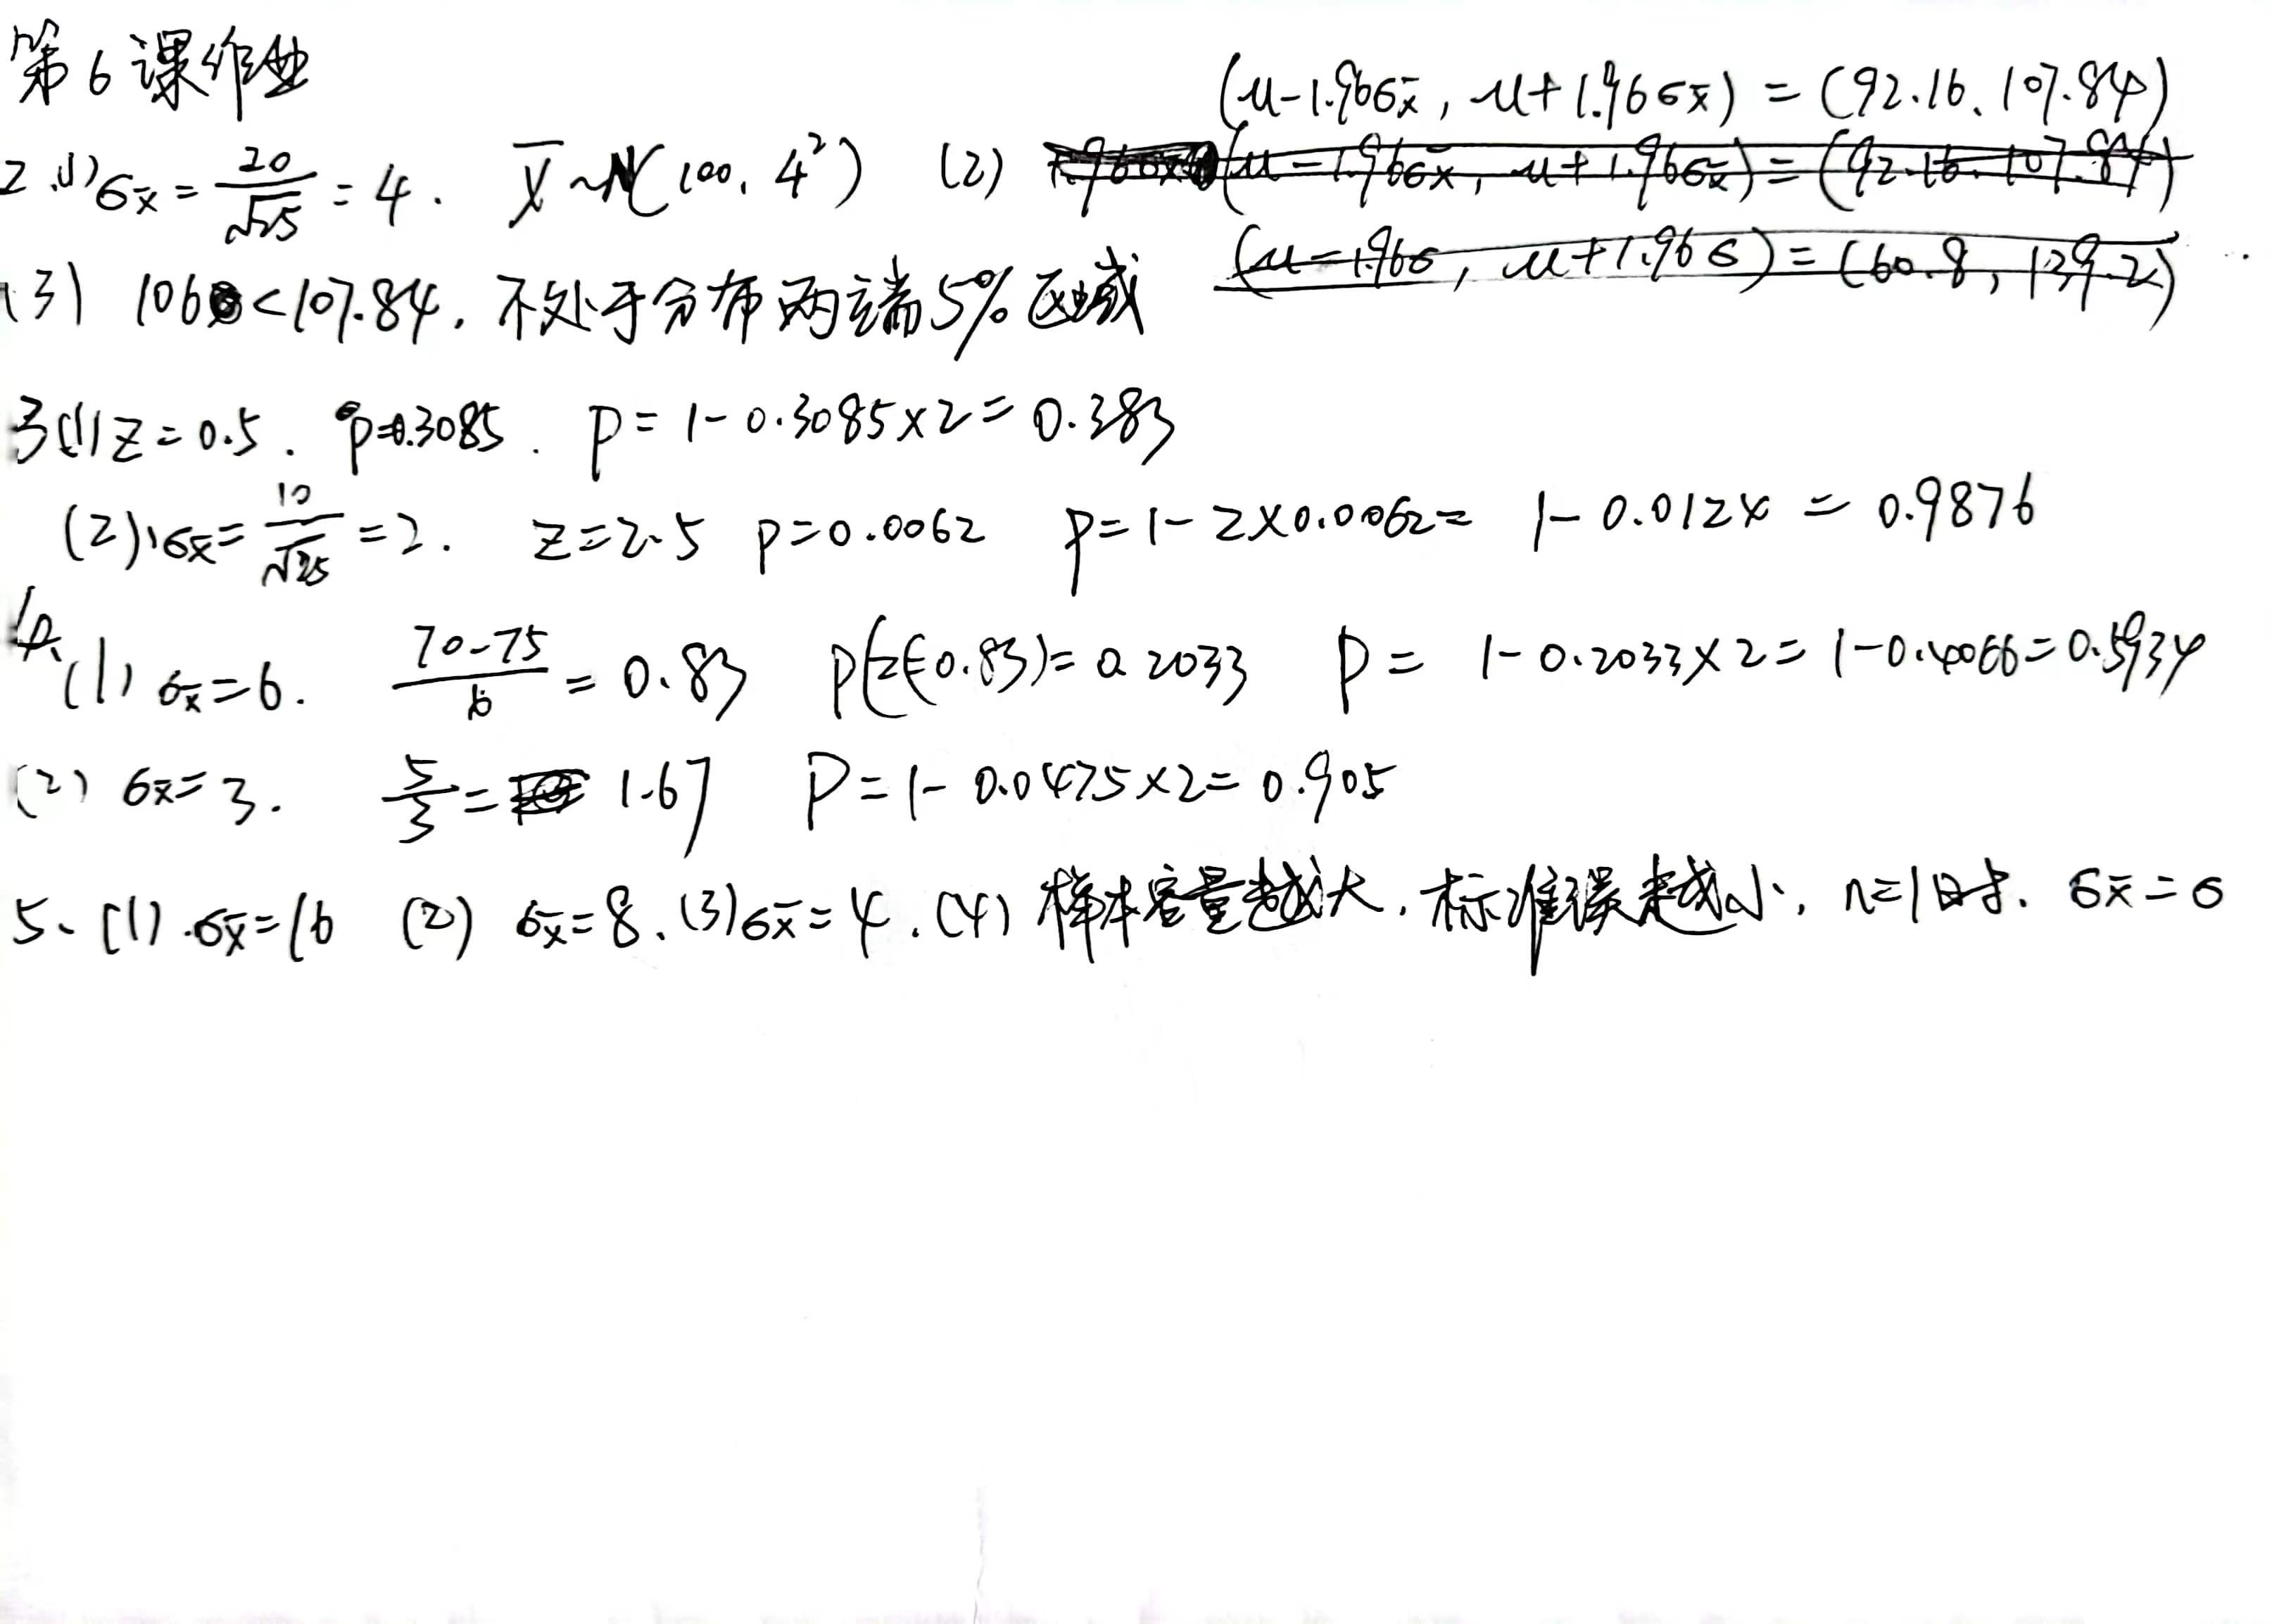 第6课作业
(μ-1.96σx̄, μ+1.96σx̄) = (92.16, 107.84)
2.(1) σx̄ = 20/√25 = 4. X̄ ~ N(100, 4²) (2) (μ-1.96σx̄, μ+1.96σx̄) = (92.16, 107.84)
(μ-1.96σ, μ+1.96σ) = (60.8, 139.2)
(3) 106 < 107.84, 不处于分布两端5%区域
3(1) z = 0.5. p=0.3085. P = 1-0.3085×2 = 0.383
(2) σx̄ = 10/√25 = 2. z=2.5 p=0.0062 P=1-2×0.0062= 1-0.0124 = 0.9876
4.(1) σx̄=6. 70-75/6 = 0.83 P(z≤0.83)=0.2033 P = 1-0.2033×2 = 1-0.4066=0.5934
(2) σx̄=3. 5/3 = 1.67 P=1-0.0475×2=0.905
5、(1) σx̄=16 (2) σx̄=8. (3) σx̄=4. (4) 样本容量越大, 标准误越小, n=1时, σx̄=σ